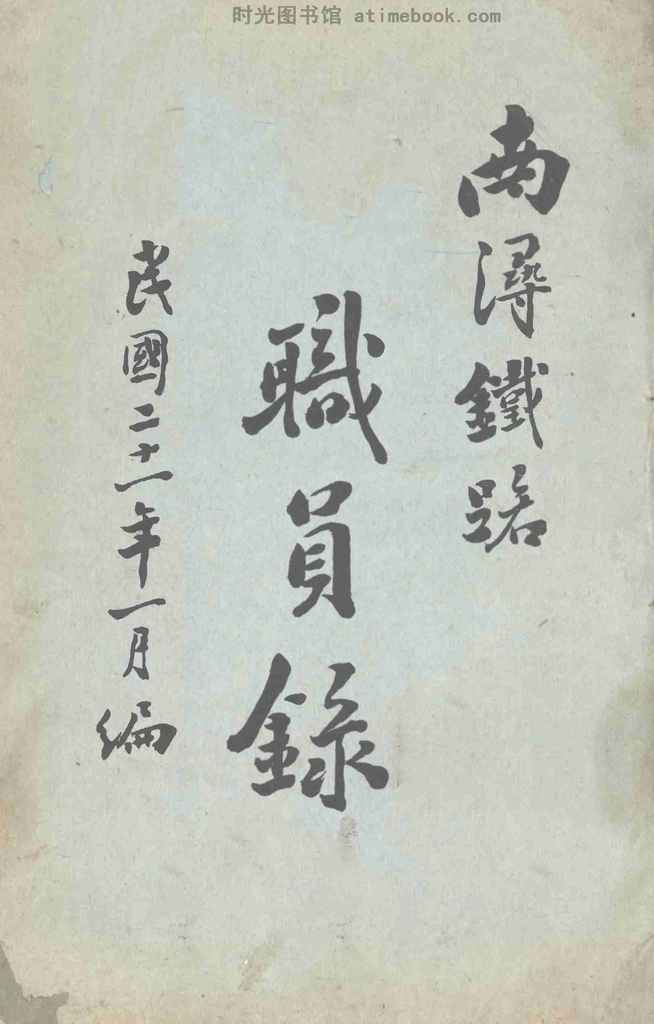 时光图书馆 atimebook.com
南潯鐵路
職員錄
民國二十一年一月編